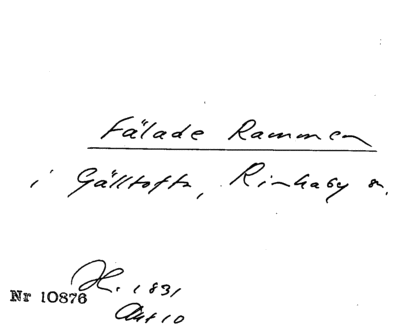 Fälade Rammen
i Gälltofta, Rinkaby sn.
H. 1831
Nr 10876
Akt 10